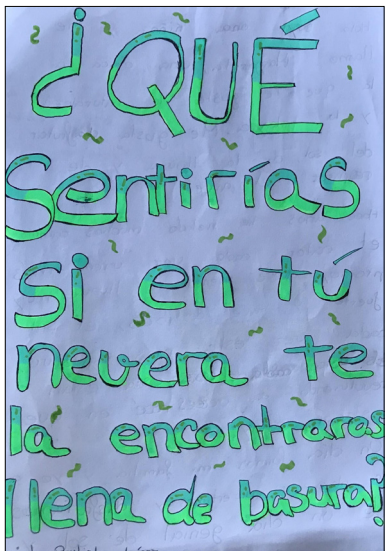 ¿QUÉ
sentirías
si en tú
nevera te
la encontraras
llena de basura?